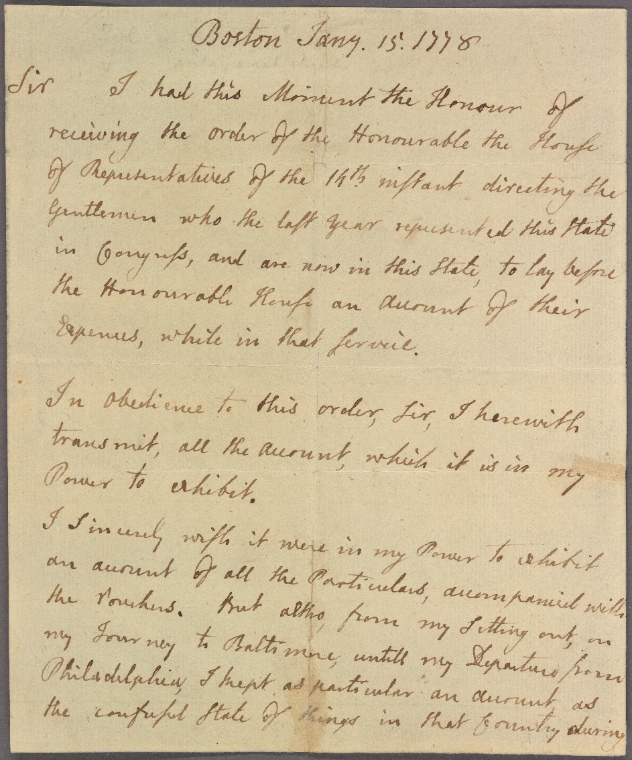 Boston Jany. 15. 1778
Sir I had this Moment the Honour of
receiving the order of the Honourable the House
of Representatives of the 14th instant directing the
Gentlemen who the last year represented this State
in Congress, and are now in this State, to lay before
the Honourable House an Account of their
Expences, while in that Service.
In obedience to this order, Sir, I herewith
transmit, all the Account, which it is in my
Power to exhibit.
I Sincerely wish it were in my Power to exhibit
an account of all the Particulars, accompanied with
the Vouchers. But altho, from my Setting out, on
my Journey to Baltimore, untill my Departure from
Philadelphia, I kept as particular an account, as
the confused State of things in that Country during